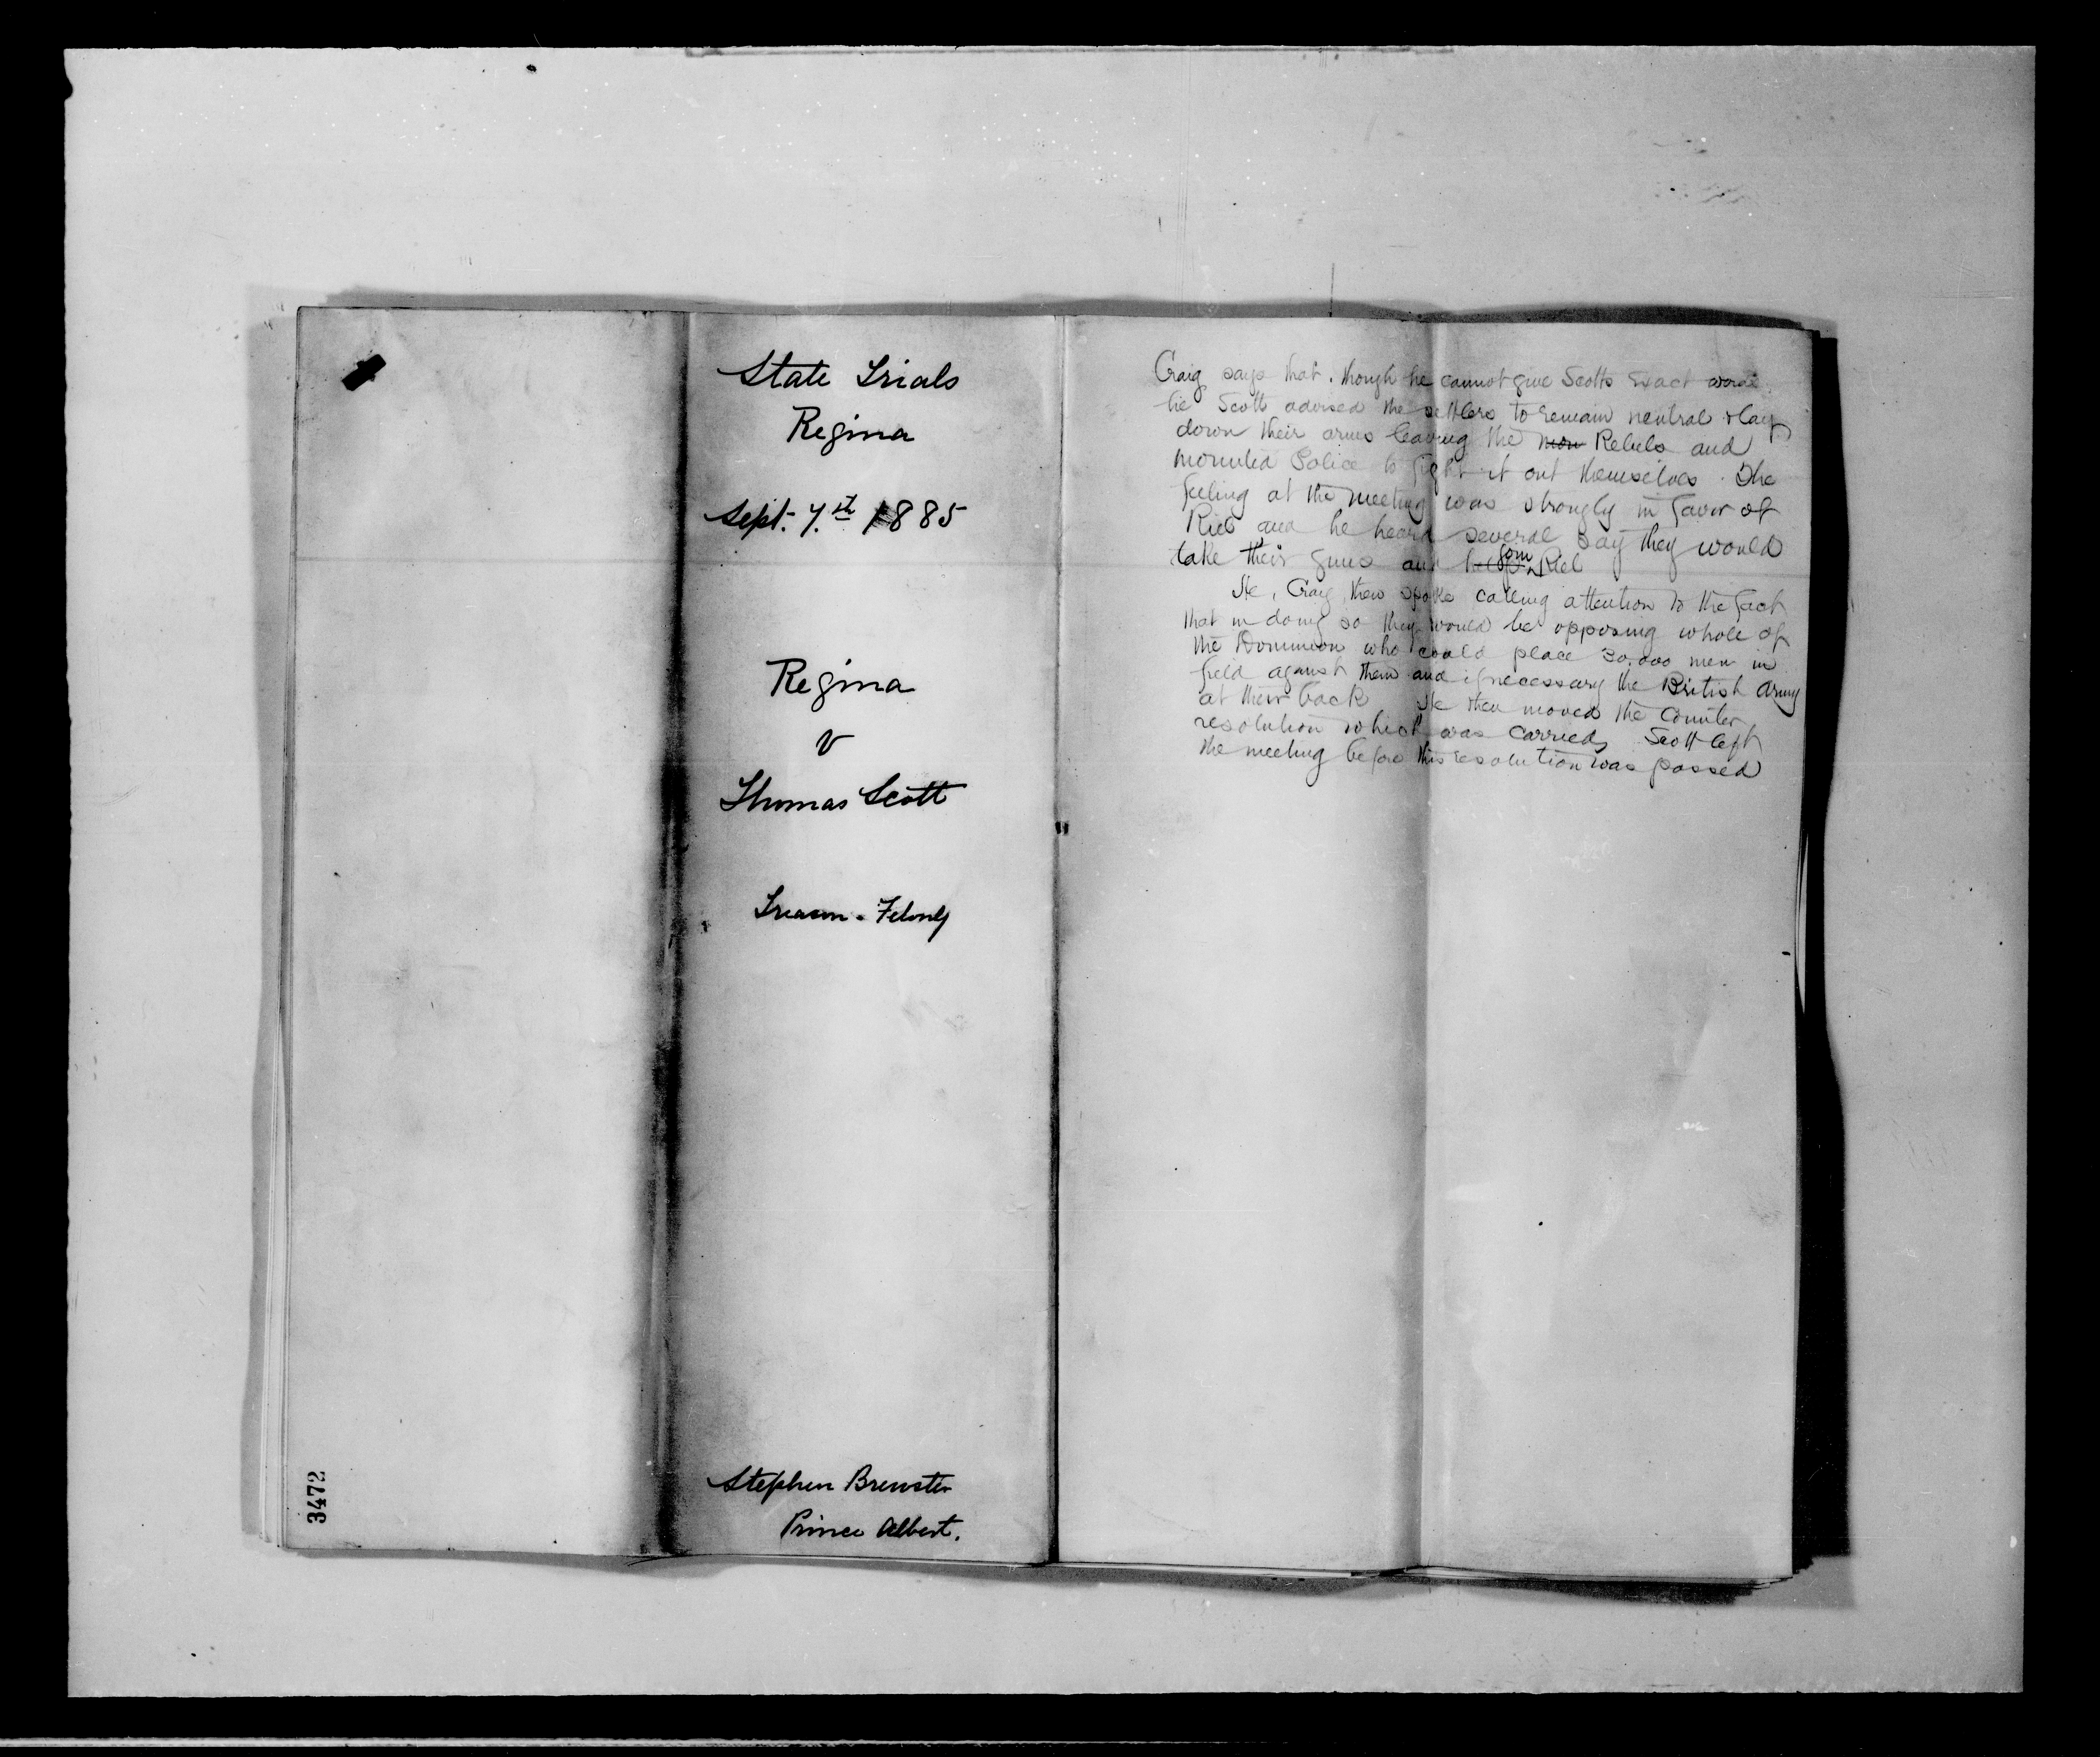 State Trials
Regina
Sept. 7.st 1885
Regina
v
Thomas Scott
Treason-Felony
Stephen Brewster
Prince Albert.
3472
Craig says that, though he cannot give Scotts exact words,
he Scott advised the settlers to remain neutral & lay
down their arms leaving the mou Rebels and
mounted Police to fight it out themselves. The
feeling at the meeting was strongly in favor of
Riel and he heard several say they would
take their guns and help join Riel
He, Craig, then spoke calling attention to the fact
that in doing so they would be opposing whole of
the Dominion who could place 30.000 men in
field against them and if necessary the British Army
at their back He then moved the counter
resolution which was carried, Scott left
the meeting before this resolution was passed